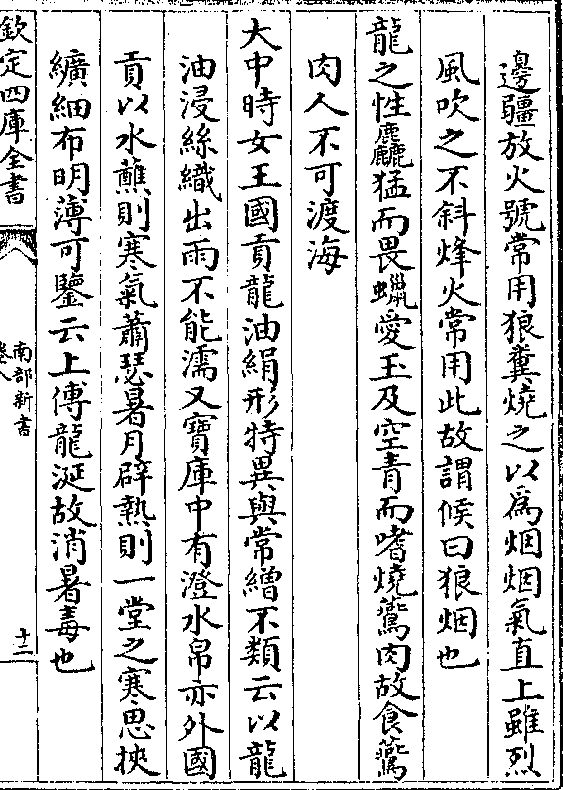 邊疆放火號常用狼糞燒之以為烟烟氣直上雖烈
風吹之不斜烽火常用此故謂候曰狼烟也
龍之性麤猛而畏蠟愛玉及空青而嗜燒鷰肉故食鷰
肉人不可渡海
大中時女王國貢龍油絹形特異與常繒不類云以龍
油浸絲織出雨不能濡又寶庫中有澄水帛亦外國
貢以水蘸則寒氣蕭瑟暑月辟熱則一堂之寒思挾
纊細布明薄可鑒云上傅龍涎故消暑毒也
欽定四庫全書
南部新書
卷八
十二